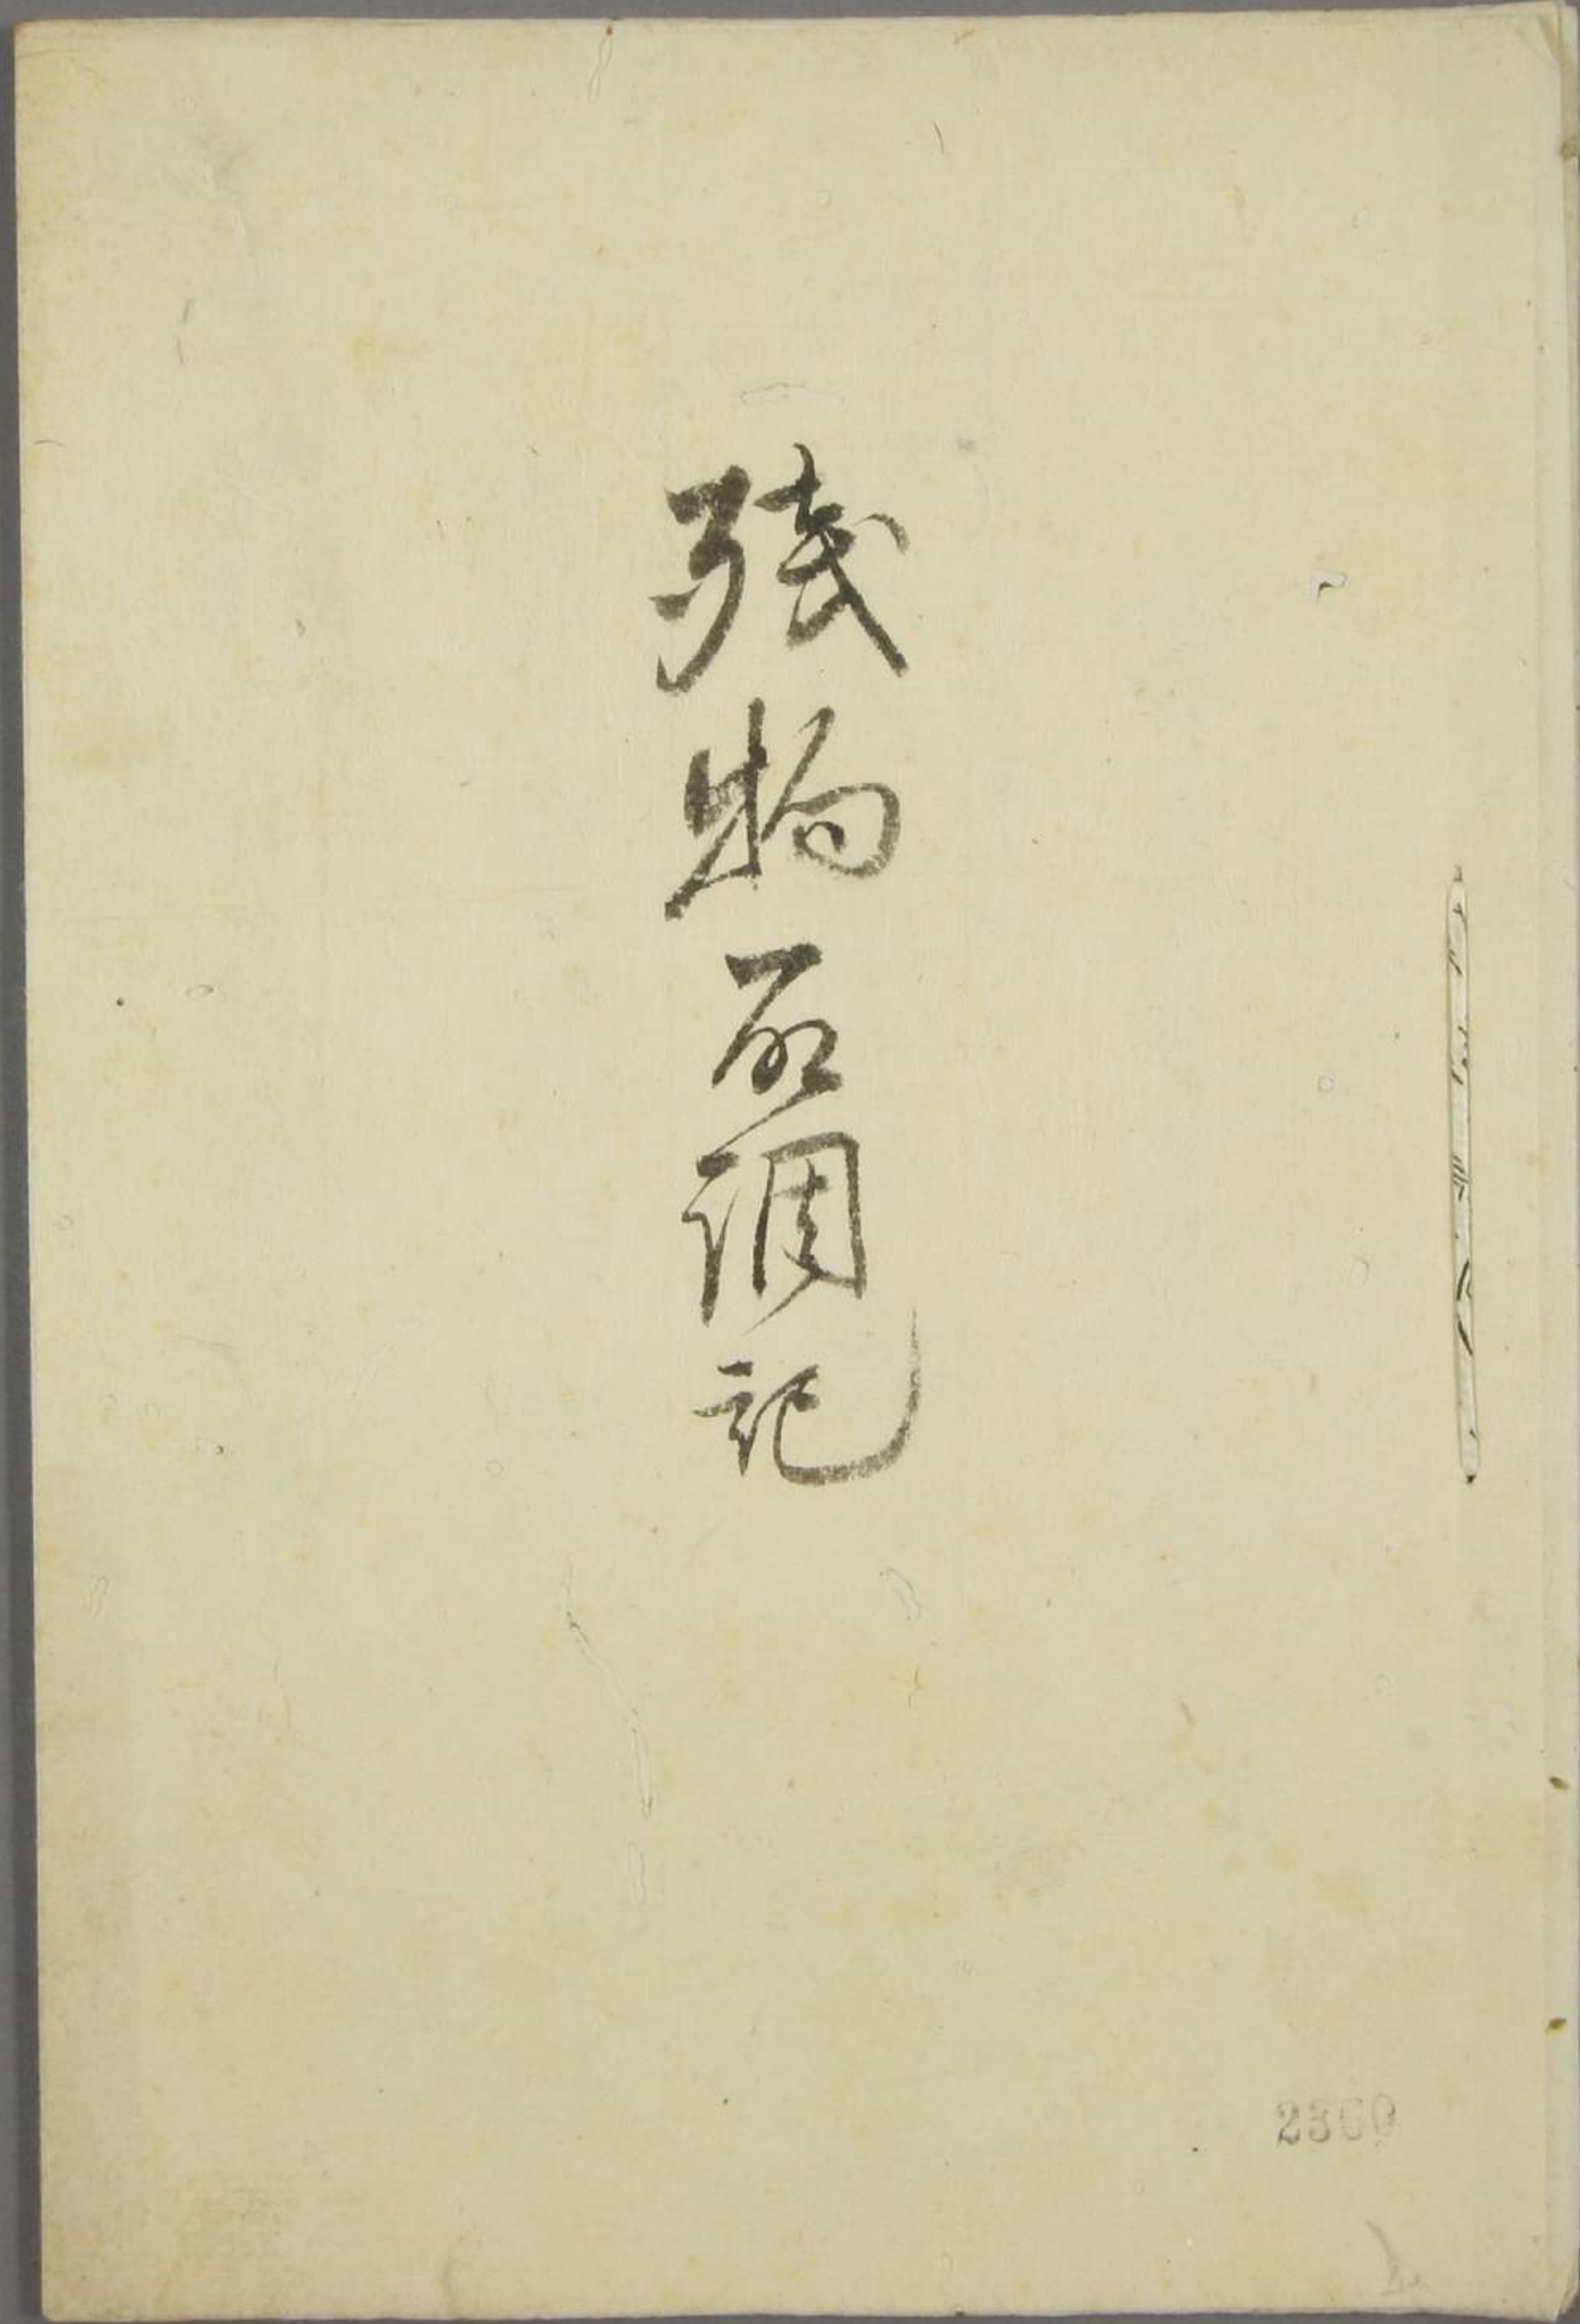 残物取調記
2360